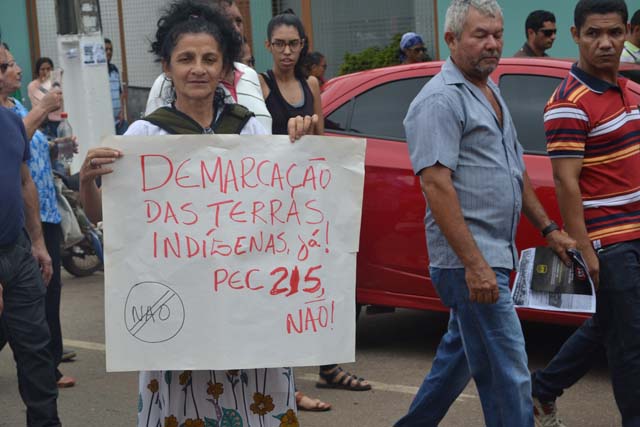 DEMARCAÇÃO
DAS TERRAS
INDÍGENAS, já!
PEC 215,
NÃO!
NÃO